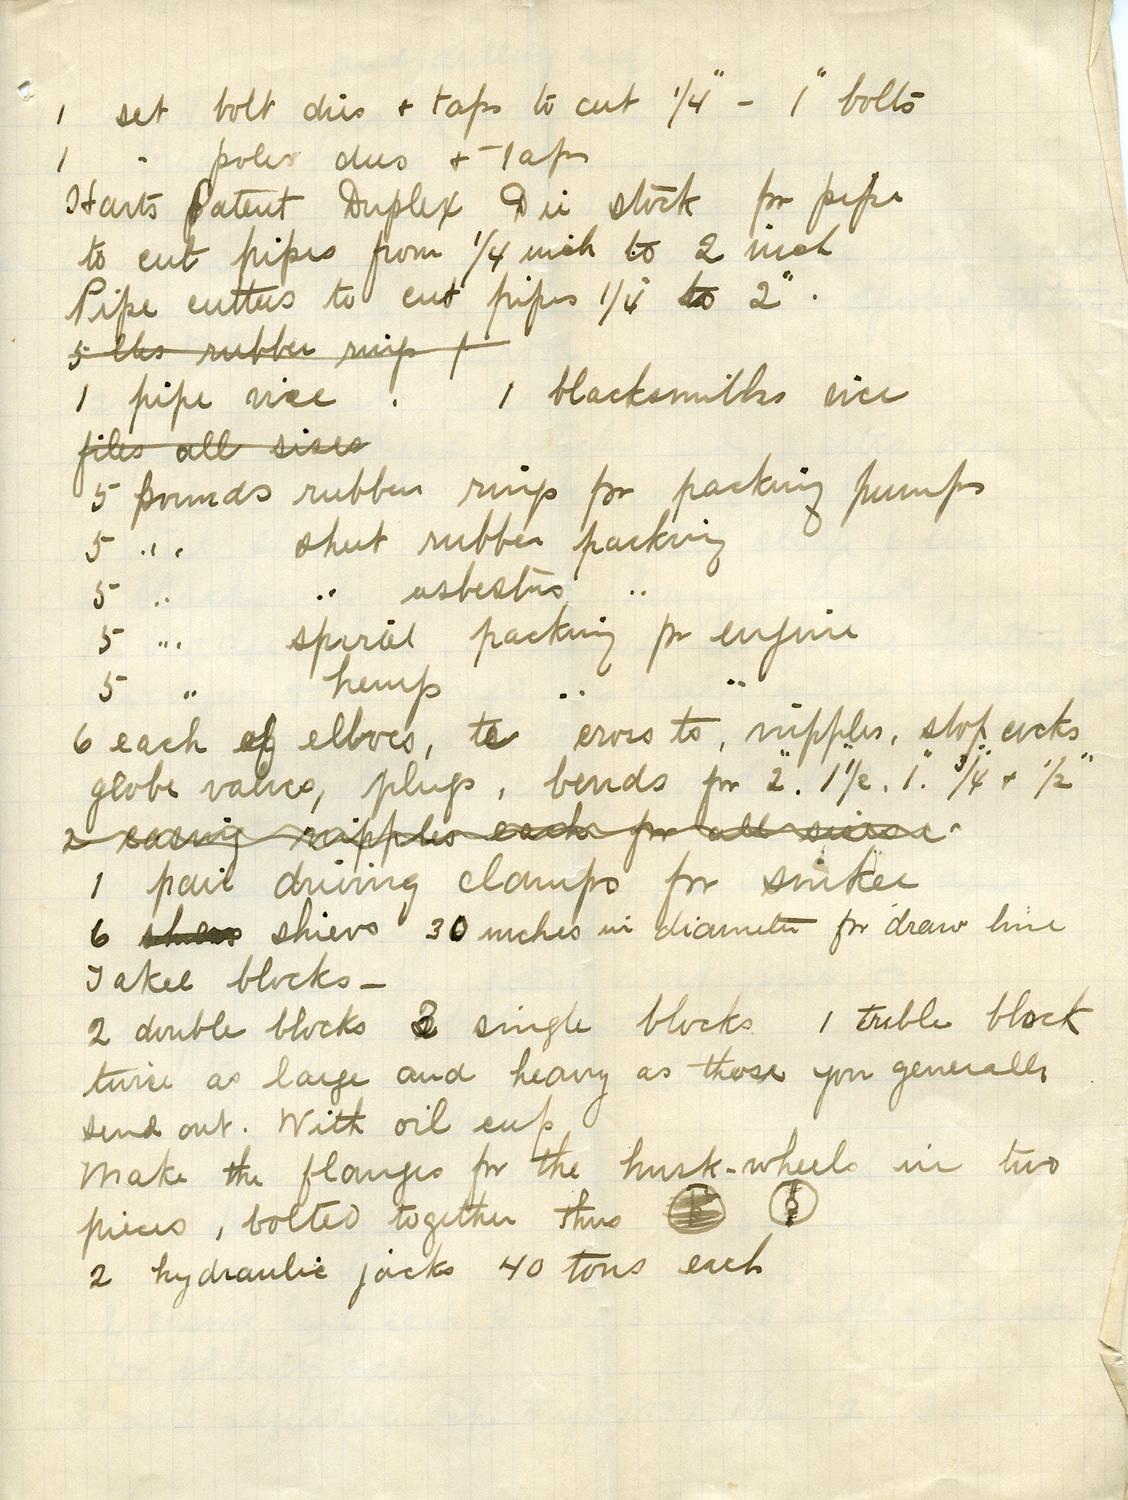 1 set bolt dies + taps to cut 1/4" - 1" bolts
1 " poler dies + Taps
Harts Patent Duplex Die stock for pipe
to cut pipes from 1/4 inch to 2 inch
Pipe cutters to cut pipes 1/4 to 2".
5 lbs rubber rings f
1 pipe vice . 1 blacksmiths vice
files all sizes
5 pounds rubber rings for packing pumps
5 " sheet rubber packing
5 " " asbestos "
5 " spiral packing for engine
5 " hemp " "
6 each of elbows, te cross ts, nipples, stop cocks
globe valves, plugs, bends for 2". 1 1/2". 1". 3/4" + 1/2"
2 casing nipples each for all sizes
1 pair driving clamps for sinker
6 shievs 30 inches in diameter for draw line
Takel blocks -
2 double blocks 3 single blocks 1 trible block
twice as large and heavy as those you generally
send out. With oil cup
Make the flanges for the hurk-wheels in two
pieces, bolted together thus
2 hydraulic jacks 40 tons each